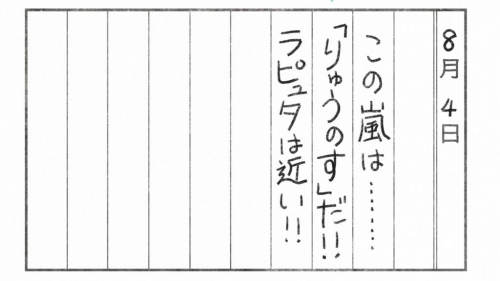 8月4日
この嵐は………
「りゅうのす」だ!!
ラピュタは近い!!